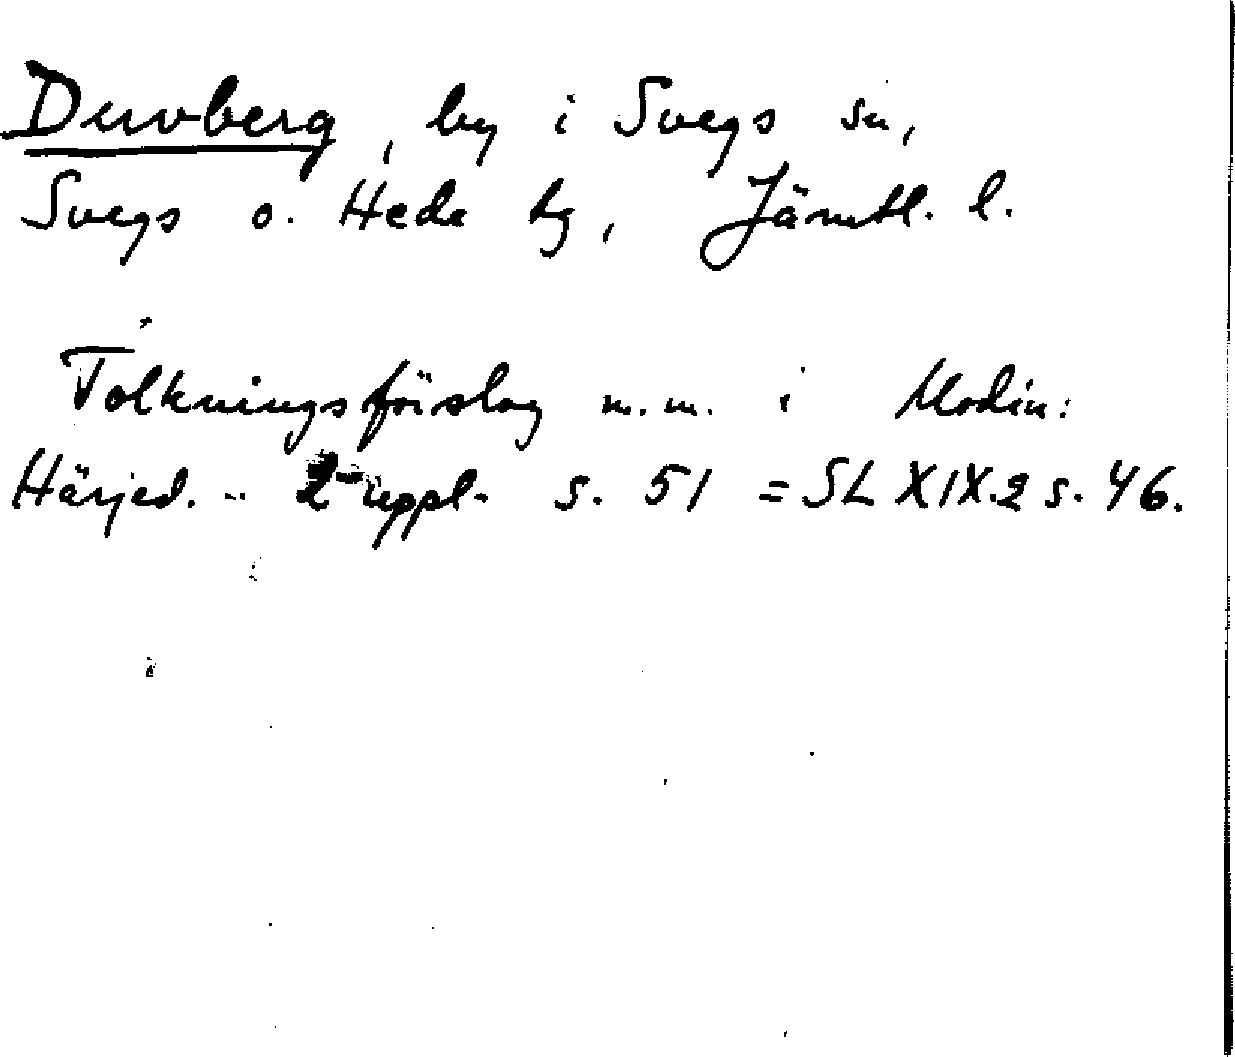 Duvberg, by i Svegs sn,
Svegs o. Hede tg, Jämtl. l.
Tolkningsförslag m.m. i Modin:
Härjed. .. 2 uppl. s. 51 = SL XIX.2 s. 46.